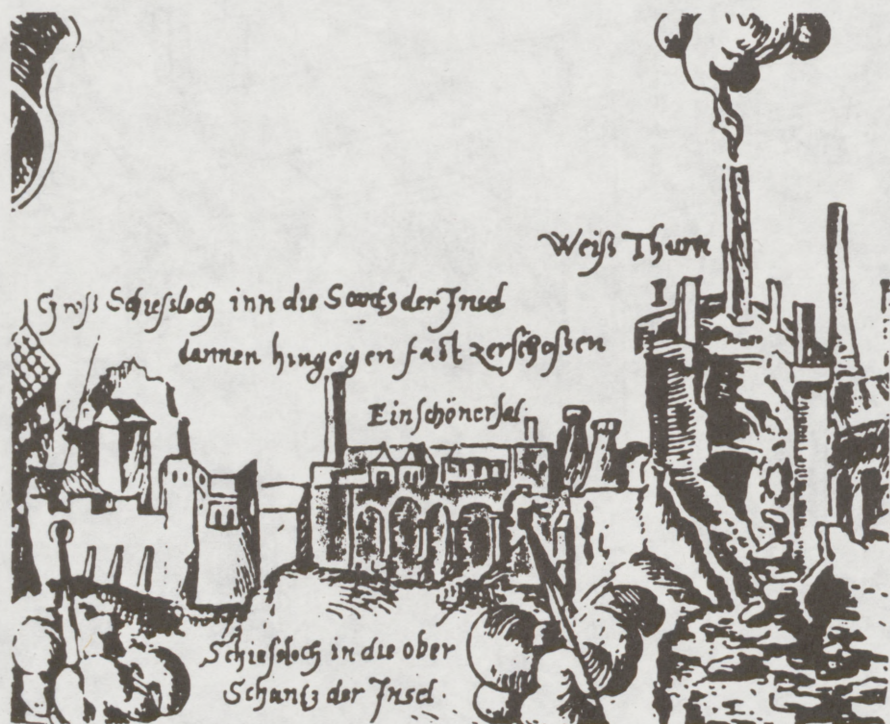 Weiß Thurn
Groß Schiessloch inn die Scantz der Insel
dannen hingegen fast zerschoßen
Ein schöner sal
Schiessloch in die ober
Schantz der Insel.